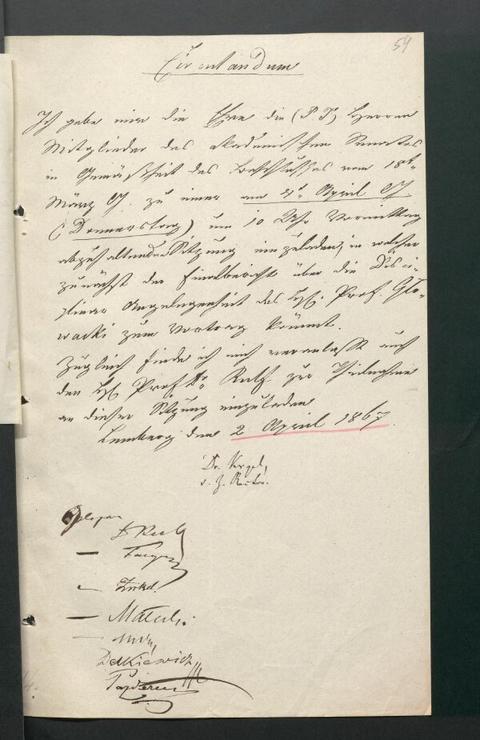 54
Circulandum
Ich gebe mir die Ehre die (P T) Herren
Mitglieder des akademischen Senates
in Gemäßheit des Beschlusses vom 18t.
März l J. zu einer am 4t. April l J
(Donnerstag) um 10 Uhr Vormittag
abzuhaltenden Sitzung einzuladen, in welcher
zunächst der Finalbericht über die Disci-
plinar Angelegenheit des H. Prof. Glo-
wacki zum Vortrag kömmt.
Zugleich finde ich mich veranlaßt auch
den H. Prof Dr. Rulf zur Theilnahme
an dieser Sitzung einzuladen
Lemberg den 2 April 1867.
Dr. Kergel,
d. Z. Rector.
Gelesen
Delkiewicz